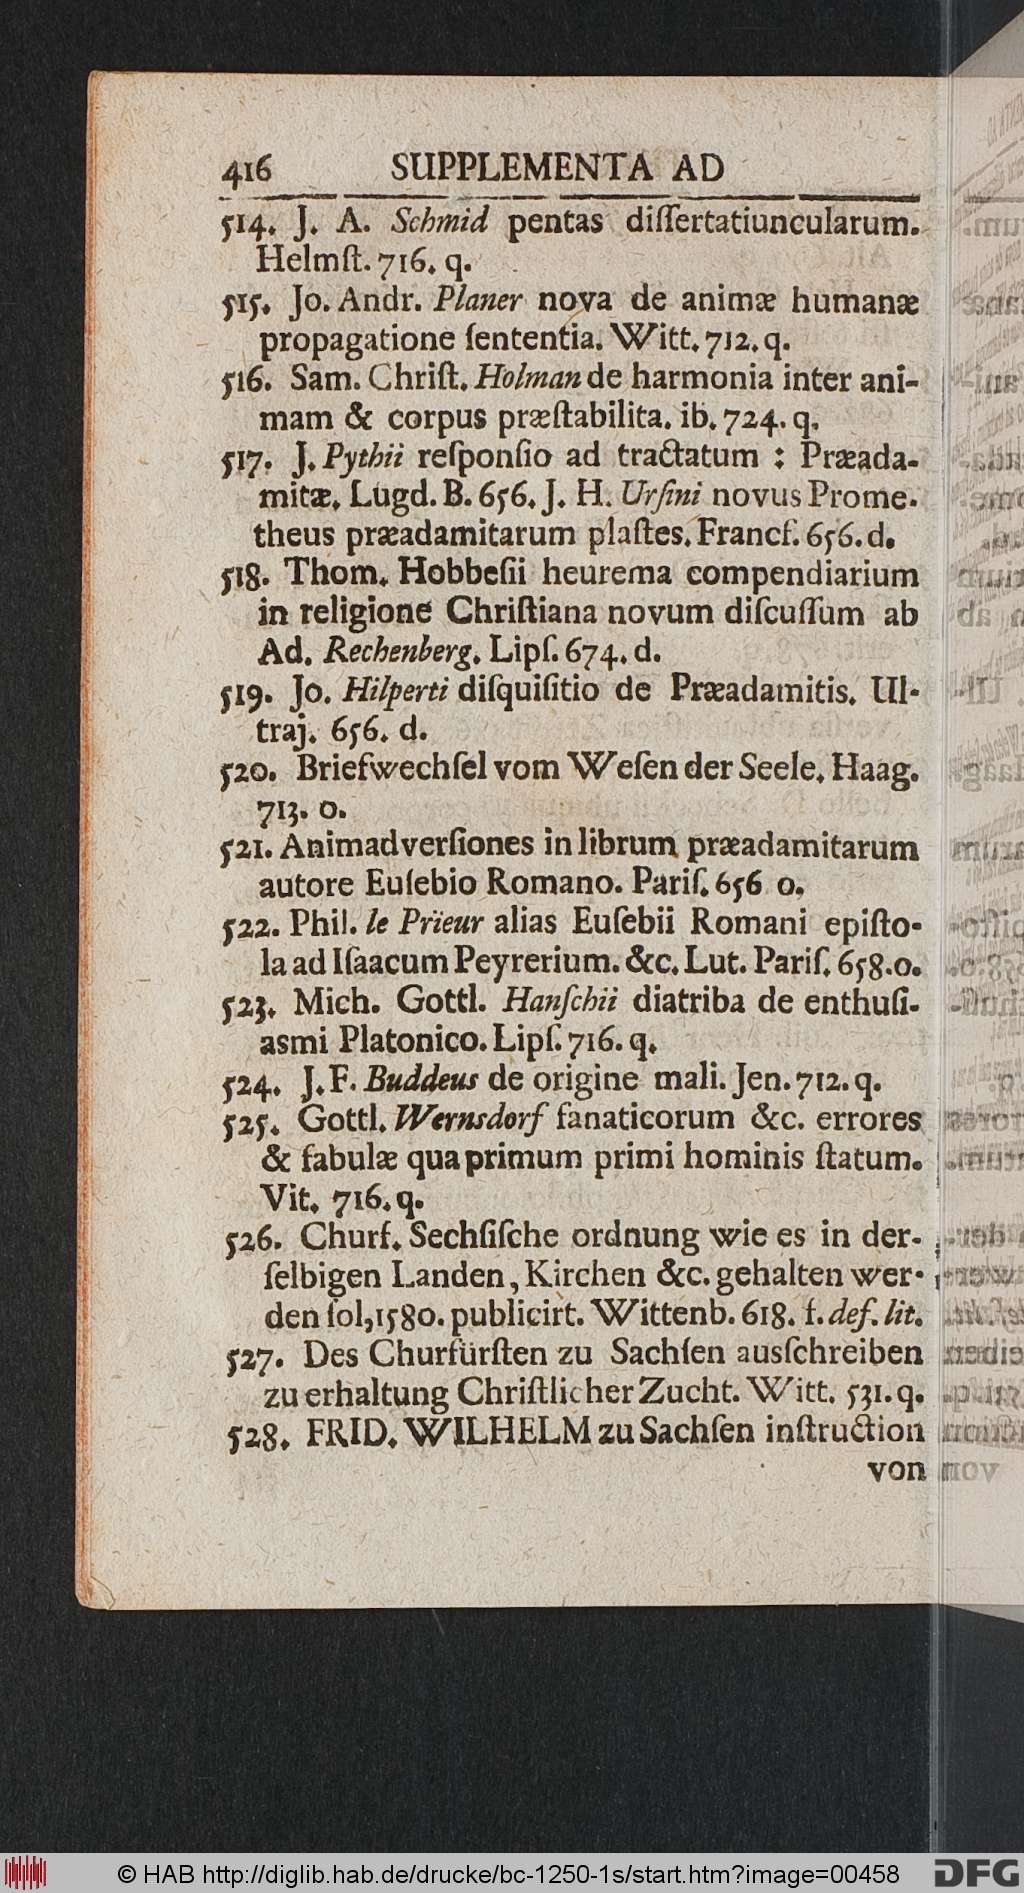 416 SUPPLEMENTA AD
514. J. A. Schmid pentas diſſertatiuncularum.
Helmſt. 716. q.
515. Jo. Andr. Planer nova de animæ humanæ
propagatione ſententia. Witt. 712. q.
516. Sam. Chriſt. Holman de harmonia inter ani-
mam & corpus præſtabilita. ib. 724. q.
517. J. Pythii reſponſio ad tractatum : Præada-
mitæ. Lugd. B. 656. J. H. Urſini novus Prome-
theus præadamitarum plaſtes. Francf. 656. d.
518. Thom. Hobbesii heurema compendiarium
in religione Chriſtiana novum diſcuſſum ab
Ad. Rechenberg. Lipſ. 674. d.
519. Jo. Hilperti diſquiſitio de Præadamitis. Ul-
traj. 656. d.
520. Briefwechſel vom Weſen der Seele. Haag.
713. o.
521. Animadverſiones in librum præadamitarum
autore Euſebio Romano. Pariſ. 656 o.
522. Phil. le Prieur alias Euſebii Romani epiſto-
la ad Iſaacum Peyrerium. &c. Lut. Pariſ. 658. o.
523. Mich. Gottl. Hanſchii diatriba de enthuſi-
asmi Platonico. Lipſ. 716. q.
524. J. F. Buddeus de origine mali. Jen. 712. q.
525. Gottl. Wernsdorf fanaticorum &c. errores
& fabulæ qua primum primi hominis ſtatum.
Vit. 716. q.
526. Churf. Sechſiſche ordnung wie es in der-
ſelbigen Landen, Kirchen &c. gehalten wer-
den ſol, 1580. publicirt. Wittenb. 618. f. def. lit.
527. Des Churfürſten zu Sachſen ausſchreiben
zu erhaltung Chriſtlicher Zucht. Witt. 531. q.
528. FRID. WILHELM zu Sachſen inſtruction
von
© HAB http://diglib.hab.de/drucke/bc-1250-1s/start.htm?image=00458
DFG